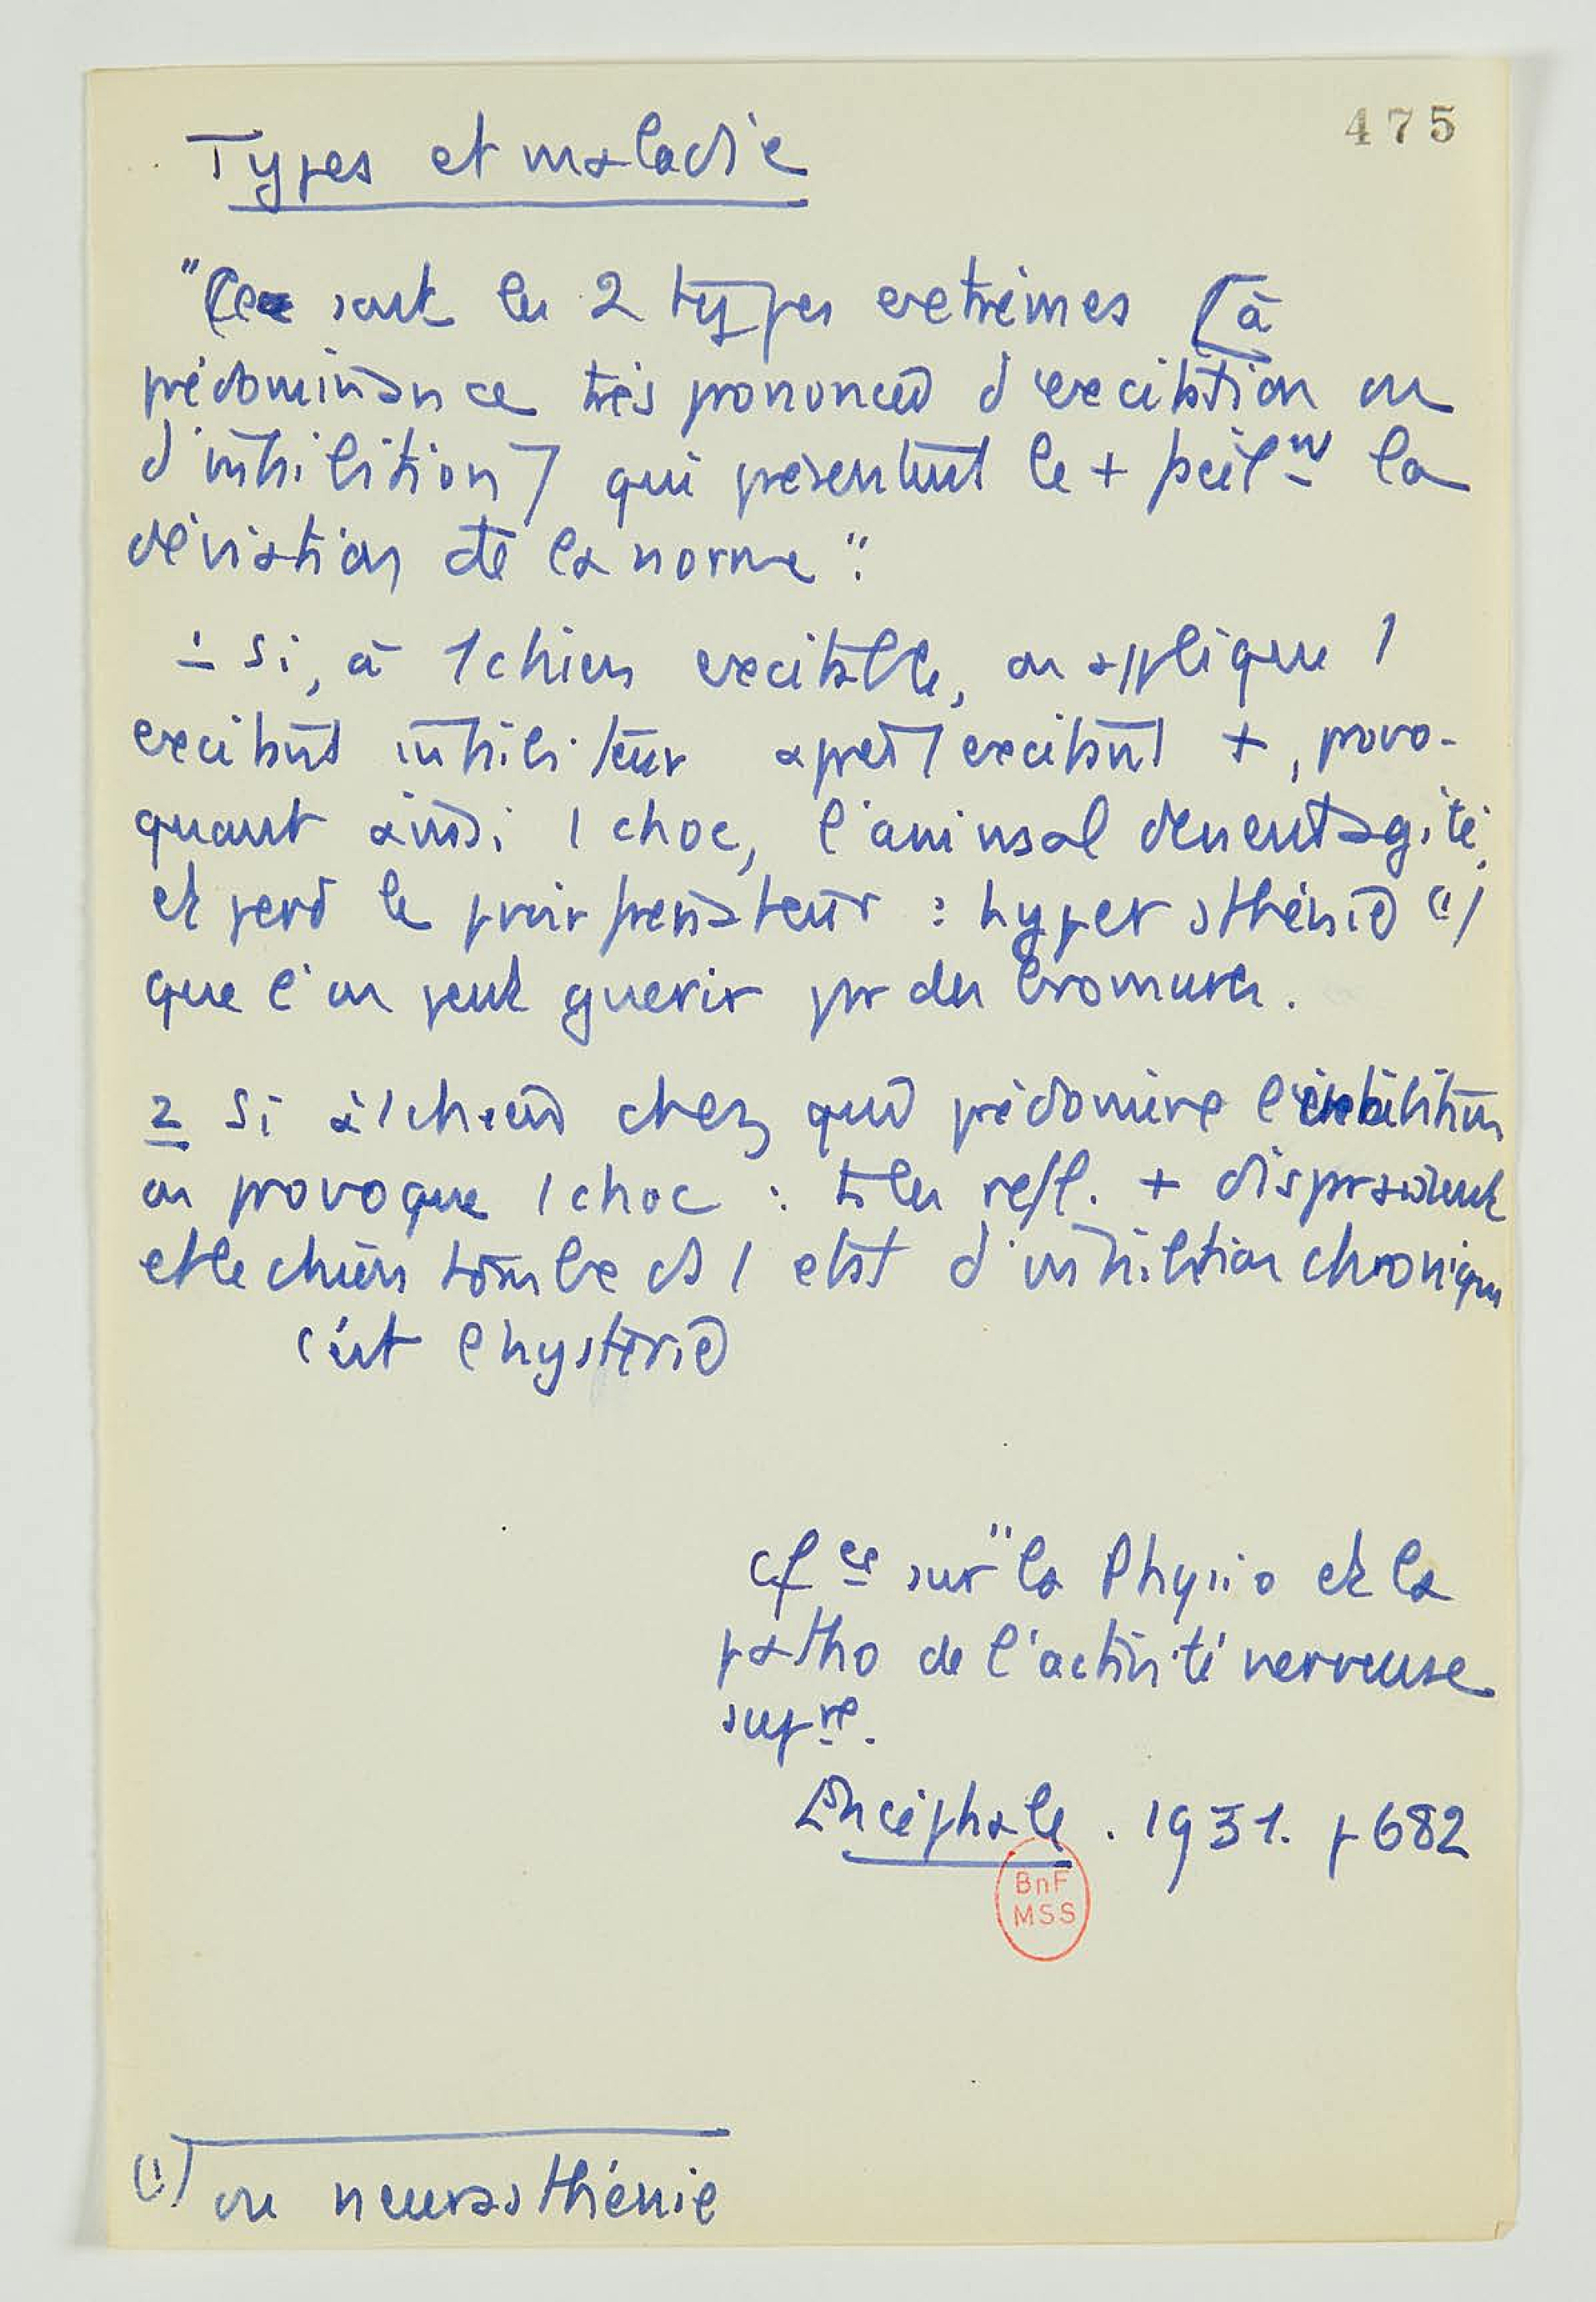 475
Types et maladie
"Ce sont les 2 types extrêmes [à
prédominance très prononcée d'excitation ou
d'inhibition] qui présentent le + facilᵗ la
déviation de la norme".
1 Si, à 1 chien excitable, on applique 1
excitant inhibiteur après 1 excitant +, provo-
quant ainsi 1 choc, l'animal devient agité,
et perd le pvoir : hypersthénie (1)
que l'on peut guérir pr des bromures.
2 Si à 1 chien chez qui prédomine l'inhibition
on provoque 1 choc : ts les refl. + disparaissent
et le chien tombe ds 1 état d'inhibition chronique
c'est l'hystérie
cf ce sur "la Physio et la
patho de l'activité nerveuse
supre.
Encéphale. 1931. p 682
BnF
MSS
(1) ou neurasthénie